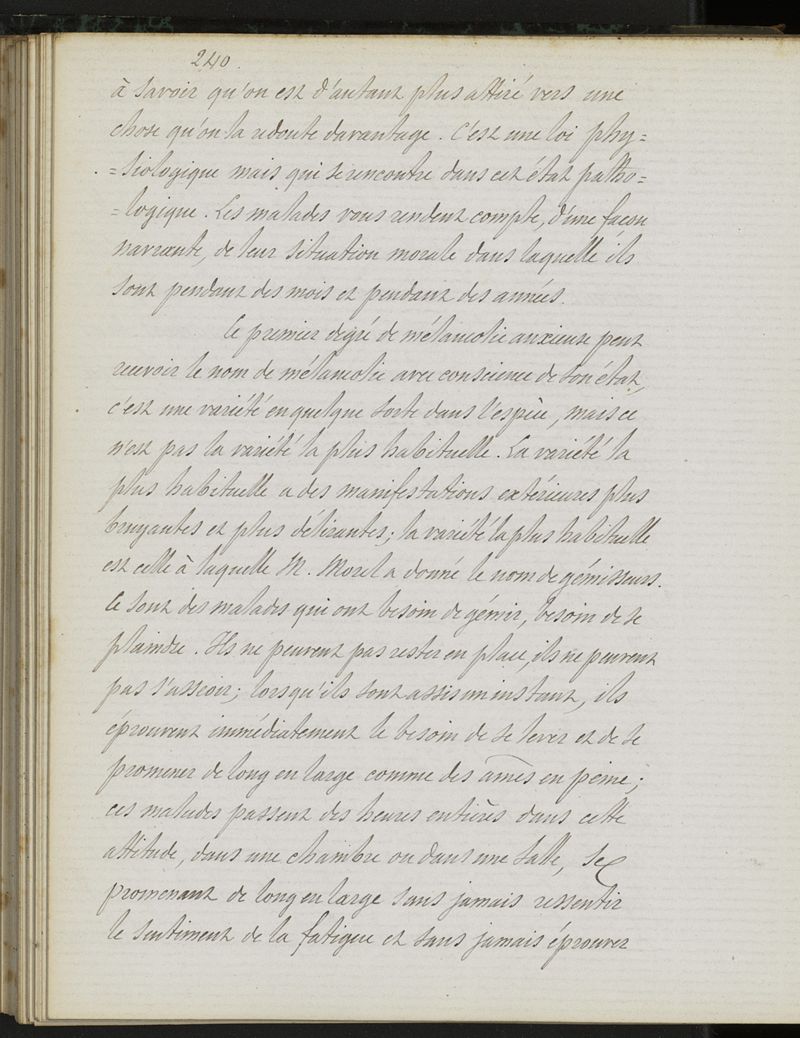 240.
à savoir qu'on est d'autant plus attiré vers une
chose qu'on la redoute davantage. C'est une loi phy=
=siologique mais qui se rencontre dans cet état patho=
=logique. Les malades vous rendent compte, d'une façon
navrante, de leur situation morale dans laquelle ils
sont pendant des mois et pendant des années.
Ce premier degré de mélancolie anxieuse peut
recevoir le nom de mélancolie avec conscience de son état,
c'est une variété en quelque sorte dans l'espèce, mais ce
n'est pas la variété la plus habituelle. La variété la
plus habituelle a des manifestations extérieures plus
bruyantes et plus délirantes; la variété la plus habituelle
est celle à laquelle M. Morel a donné le nom de gémisseurs.
Ce sont des malades qui ont besoin de gémir, besoin de se
plaindre. Ils ne peuvent pas rester en place, ils ne peuvent
pas s'asseoir; lorsqu'ils sont assis un instant, ils
éprouvent immédiatement le besoin de se lever et de se
promener de long en large comme des âmes en peine;
ces malades passent des heures entières dans cette
attitude, dans une chambre ou dans une salle, se
promenant de long en large sans jamais ressentir
le sentiment de la fatigue et sans jamais éprouver